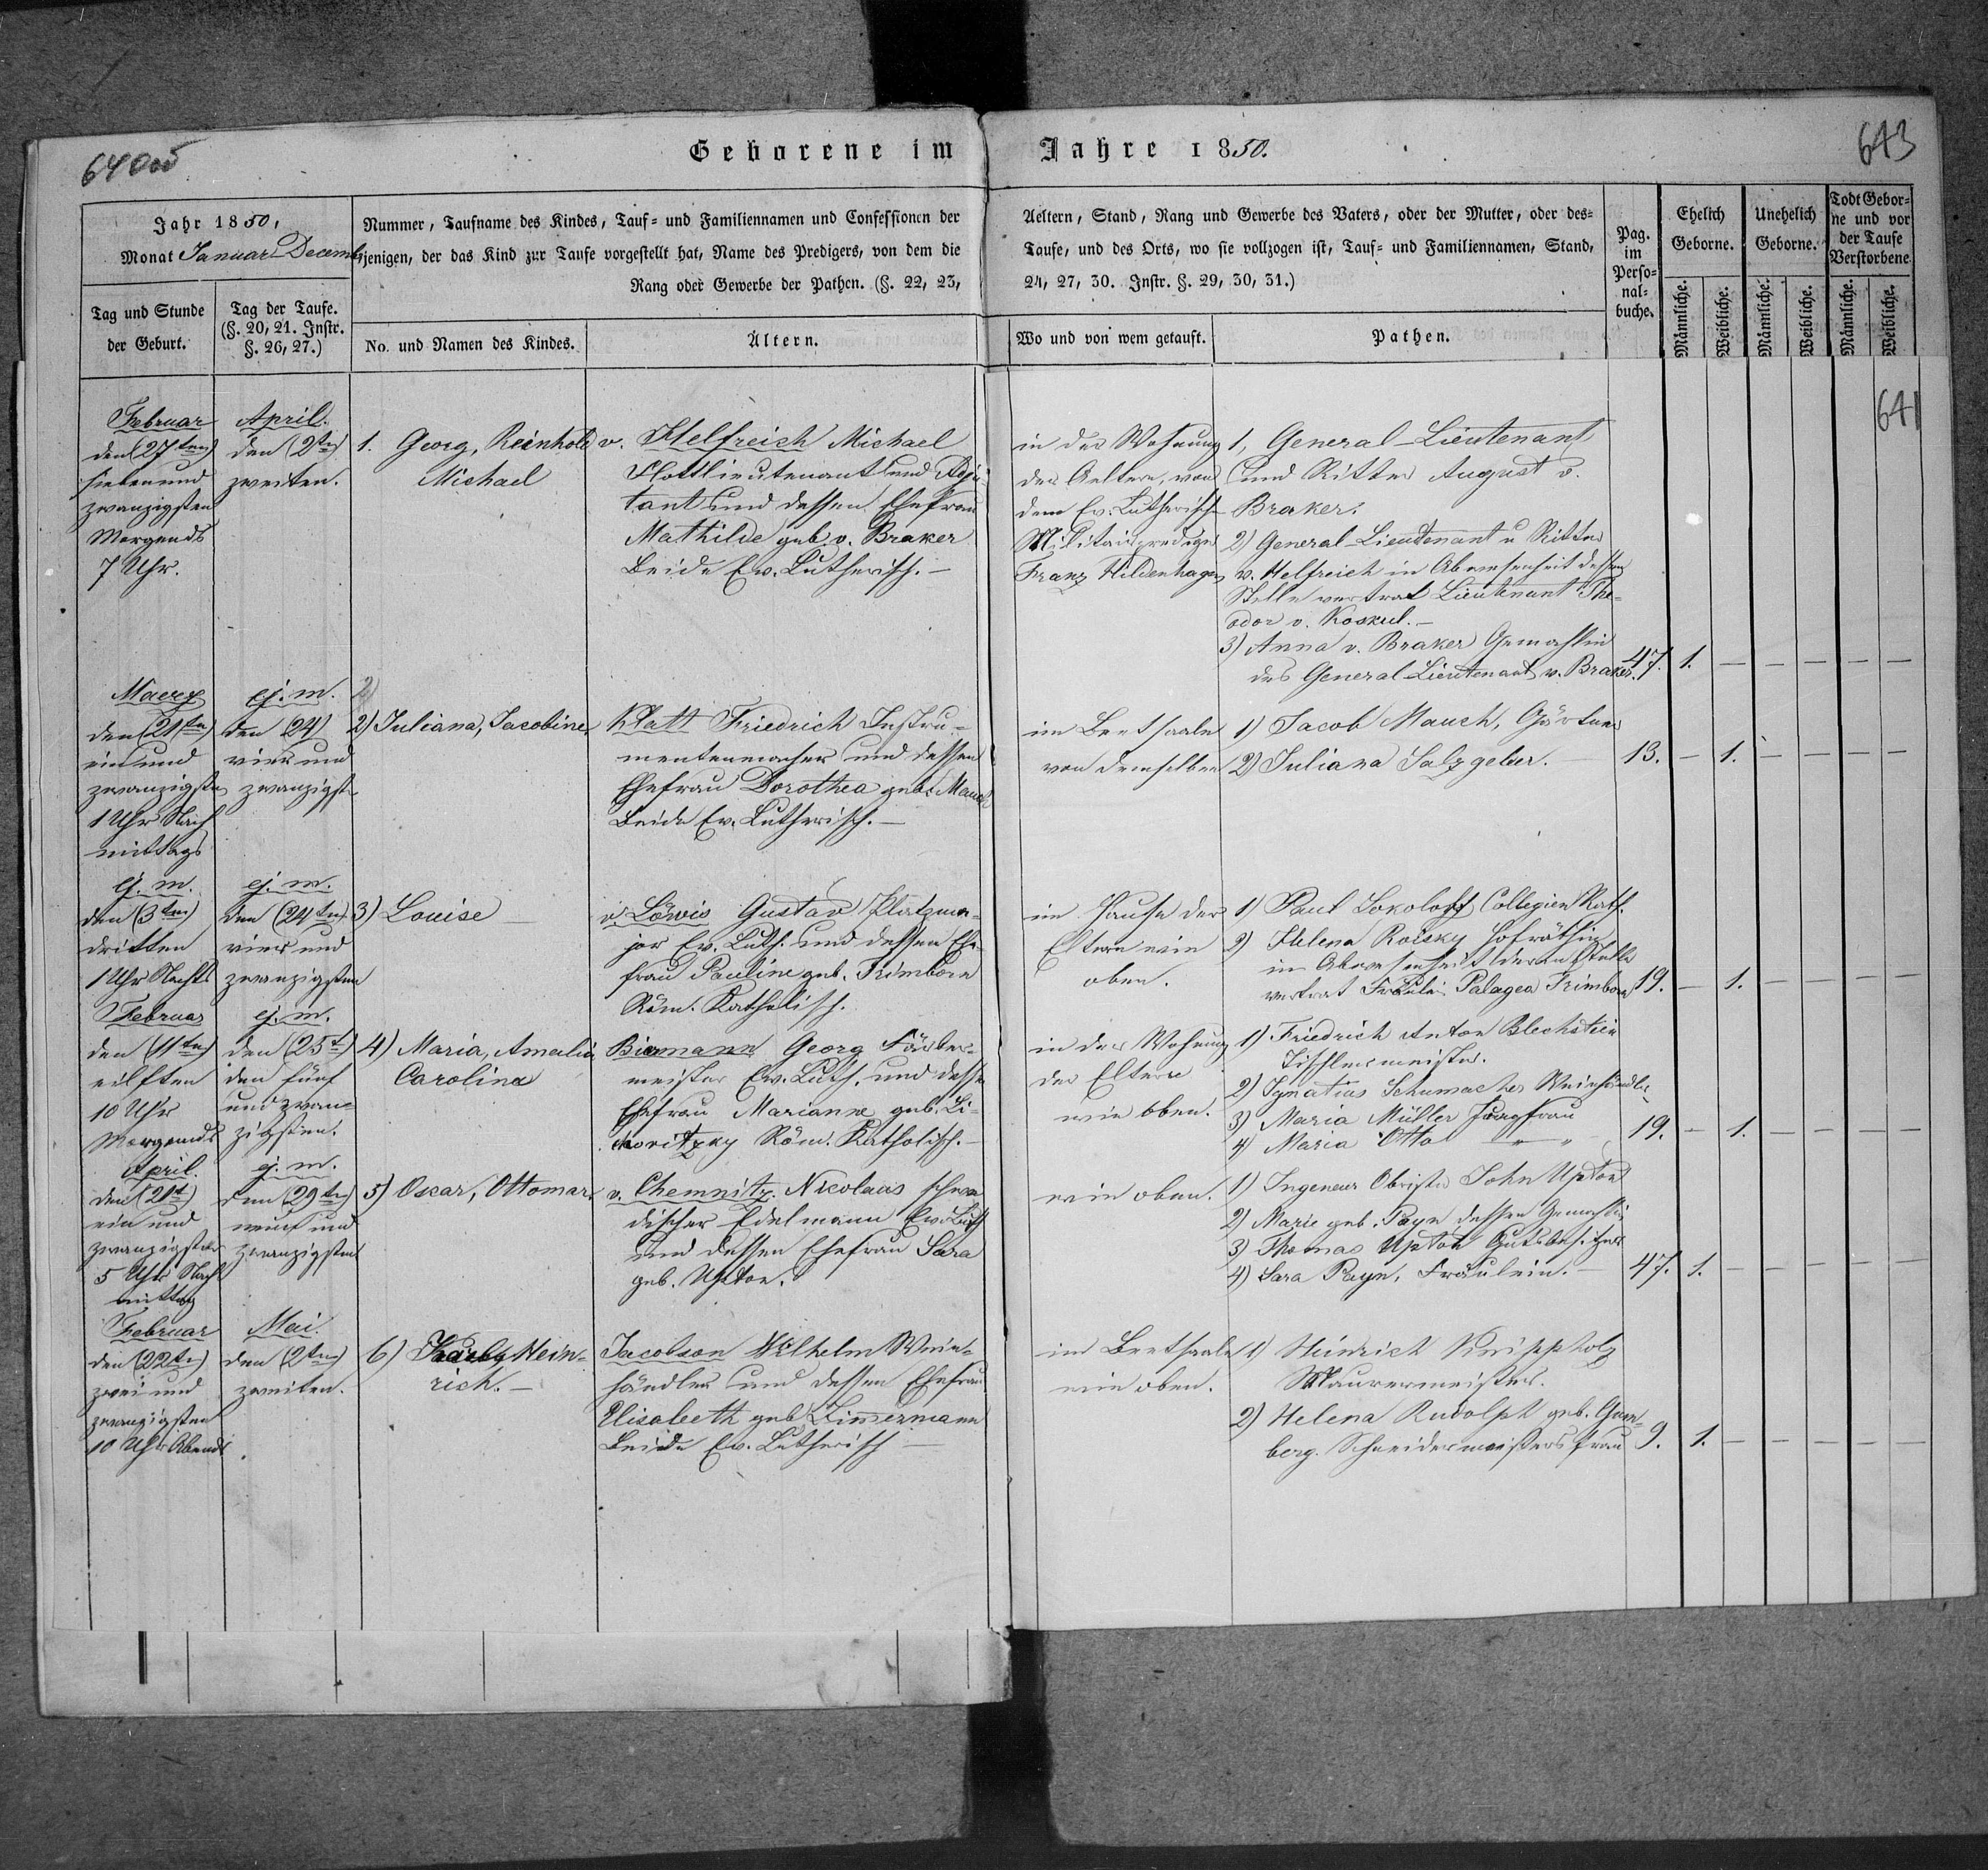 Geborene im Jahre 1850.
640 643
Jahr 1850,
Monat Januar-Decemb
Nummer, Taufname des Kindes, Tauf- und Familiennamen und Confessionen der Aeltern, Stand, Rang und Gewerbe des Vaters, oder der Mutter, oder des-
jenigen, der das Kind zur Taufe vorgestellt hat, Name des Predigers, von dem die Taufe, und des Orts, wo sie vollzogen ist, Tauf- und Familiennamen, Stand,
Rang oder Gewerbe der Pathen. (§. 22, 23, 24, 27, 30. Instr. §. 29, 30, 31.)
Tag und Stunde
der Geburt.
Tag der Taufe.
(§. 20, 21. Instr.
§. 26, 27.)
No. und Namen des Kindes.
Ältern.
Wo und von wem getauft.
Pathen.
Pag.
im
Perso-
nal-
buche.
Ehelich
Geborne.
Unehelich
Geborne.
Todt Gebor-
ne und vor
der Taufe
Verstorbene.
Männliche.
Weibliche.
Männliche.
Weibliche.
Männliche.
Weibliche.
641
Februar
den (27ten)
sieben und
zwanzigsten
Morgends
7 Uhr.
April.
den (2ten)
zweiten.
1. Georg, Reinhold
Michael
v. Helfreich Michael
Flottlieutenant und Adju-
tant und dessen Ehefrau
Mathilde geb. v. Braker
Beide Ev. Lutherisch. —
in der Wohnung
der Aeltern, von
dem Ev. Lutherisch
Militairprediger
Franz Hildenhagen
1, General-Lieutenant
und Ritter August v.
Braker.
2) General-Lieutenant u Ritter
v. Helfreich in Abwesenheit dessen
Stelle vertrat Lieutenant The-
odor v. Koskul. —
3) Anna v. Braker Gemahlin
des General-Lieutenant v. Braker.
47. 1. — — — — —
Maerz
den (21ten)
ein und
zwanzigsten
1 Uhr Nach
mittags
ej. m.
den (24)
vier und
zwanzigst
2)
2) Juliana, Jacobine
Klatt Friedrich Instru-
mentenmacher und dessen
Ehefrau Dorothea geb. Mauch
Beide Ev. Lutherisch. —
im Beetsaale
von demselben
1) Jacob Mauch, Gärtner
2) Juliana Salzgeber. —
13. — 1. — — — —
ej. m.
den (3ten)
dritten
1 Uhr Nachts
ej. m.
den (24ten)
vier und
zwanzigsten
3) Louise
v. Löwis Gustav Platzma-
jor Ev. Luth. und dessen Ehe-
frau Pauline geb. Trimborn
Röm. Katholisch.
im Hause der
Eltern wie
oben.
1) Paul Sokoloff Collegien Rath.
2) Helena Roisky Hofräthin
in Abwesenheit deren Stelle
vertrat Fräulein Palagea Trimborn
19. — 1. — — — —
Februar
den (11ten)
eilften
10 Uhr
Morgends
ej. m.
den (25t)
den fünf
und zwan-
zigsten.
4) Maria, Amalia
Carolina
Biermann Georg
meister Ev. Luth. und dessen
Ehefrau Marianne geb.
Röm. Katholisch. —
in der Wohnung
der Eltern
wie oben.
1) Friedrich Anton Blechstein
Tischlermeister.
2) Ignatius Schumacher Weinhändler
3) Maria Müller Jungfrau
4) Maria Otto — " —
19. — 1. — — — —
April.
den (21t)
ein und
zwanzigsten
5 Uhr Nach
mittag
ej. m.
den (29ten)
neun und
zwanzigsten
5) Oscar, Ottomar.
v. Chemnitz. Nicolaus schwe
discher Edelmann Ev. Luth
und dessen Ehefrau Sara
geb. Upton.
wie oben.
1) Ingeneur Obrister John Upton
2) Marie geb. Payn dessen Gemahlin
3) Thomas Upton Gutsbesitzer
4) Sara Payn, Fräulein. —
47. 1. — — — — —
Februar
den (22ten)
zwei und
zwanzigsten
10 Uhr Abends
Mai.
den (2ten)
zweiten.
6) Hein-
rich. —
Jacobson Wilhelm Wein-
händler und dessen Ehefrau
Elisabeth geb Zimmermann
Beide Ev. Lutherisch —
im Beetsaale
wie oben.
1) Heinrich Knippholz
Maurermeister.
2) Helena Rudolph geb.
berg. Schneidermeisters frau
9. 1. — — — — —